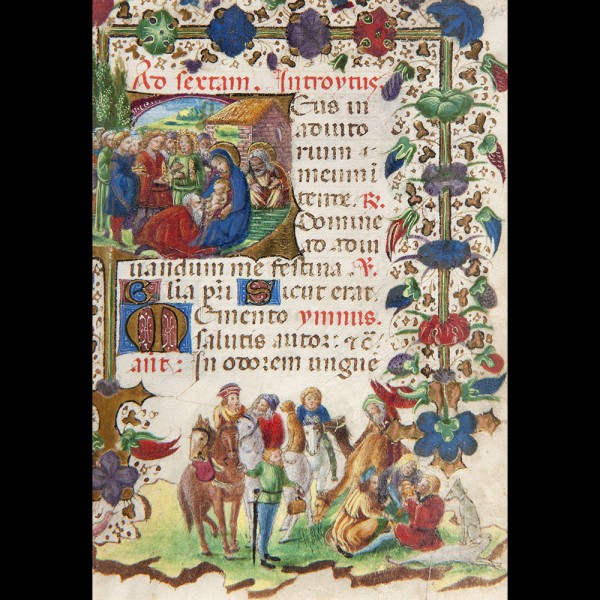 Ad sextam. Introytus
Deus in
adiuto
rium
meum ī
tende. R.
Domine
ad adiu
uandum me festina. R.
Glia pri Sicut erat.
Memento ymnus.
salutis autor: &c̄
ant: In odorem ungue